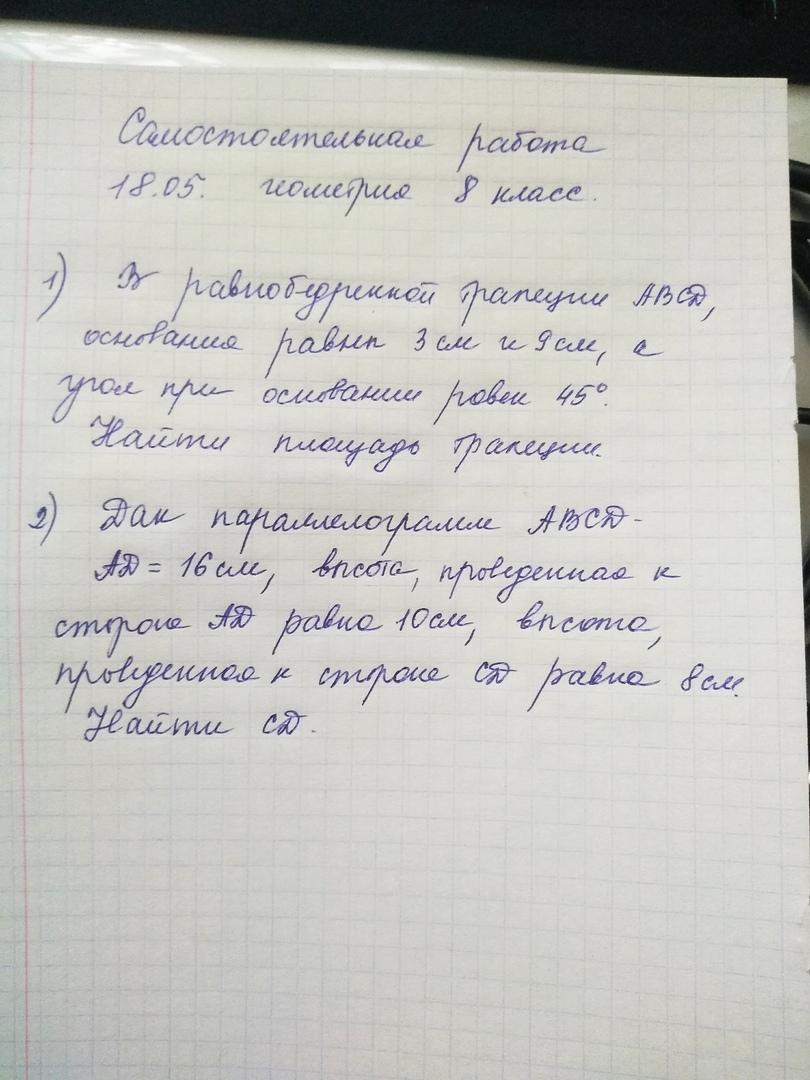 Самостоятельная работа
18.05. геометрия 8 класс.
1) В равнобедренной трапеции ABCD,
основания равны 3 см и 9 см, а
угол при основании равен 45°.
Найти площадь трапеции.
2) Дан параллелограмм ABCD-
AD = 16 см, высота, проведенная к
стороне AD равна 10 см, высота,
проведенная к стороне CD равна 8 см.
Найти CD.